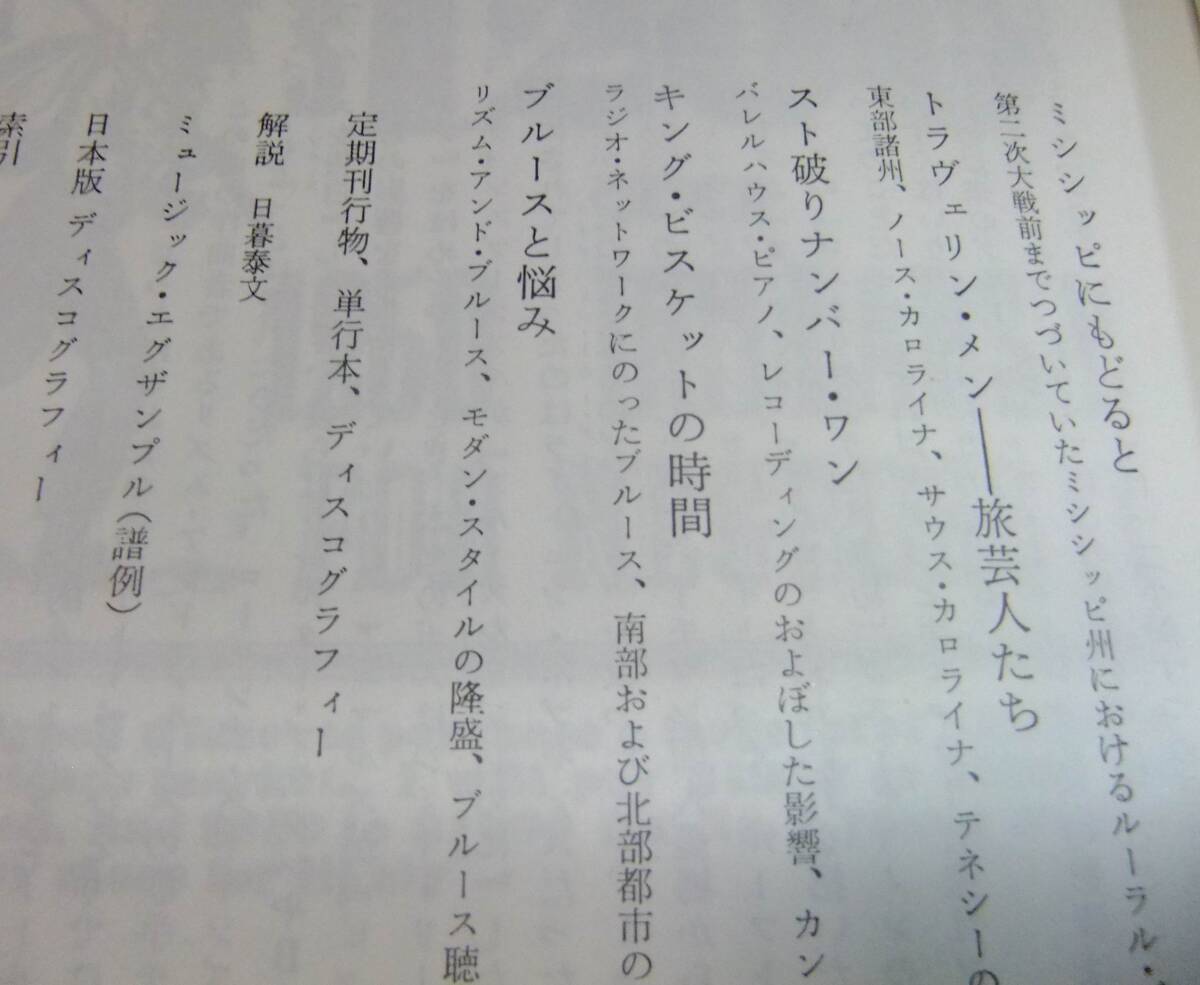 ミシシッピにもどると
第二次大戦前までつづいていたミシシッピ州におけるルーラル・
トラヴェリン・メン――旅芸人たち
東部諸州、ノース・カロライナ、サウス・カロライナ、テネシーの
スト破りナンバー・ワン
バレルハウス・ピアノ、レコーディングのおよぼした影響、カン
キング・ビスケットの時間
ラジオ・ネットワークにのったブルース、南部および北部都市の
ブルースと悩み
リズム・アンド・ブルース、モダン・スタイルの隆盛、ブルース聴
定期刊行物、単行本、ディスコグラフィー
解説　日暮泰文
ミュージック・エグザンプル(譜例)
日本版 ディスコグラフィー
索引